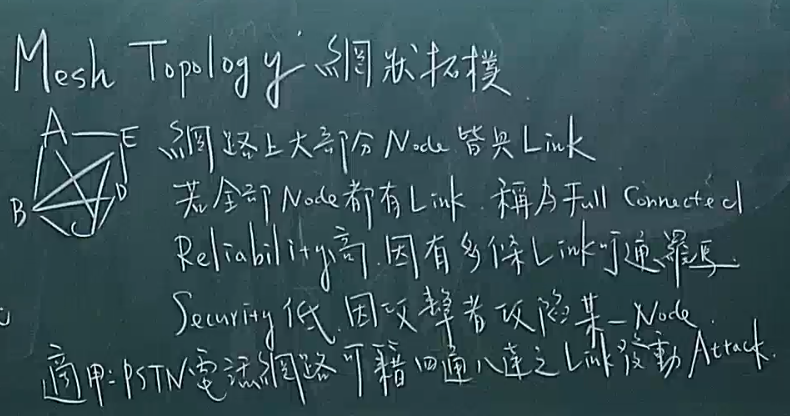 Mesh Topology 網狀拓樸
A E B D C
網路上大部份Node皆具Link
若全部Node都有Link.稱為Full Connected
Reliability高.因有多條Link可通羅馬.
Security低.因攻擊者攻陷某一Node.
適用:PSTN電話網路 可藉四通八達之Link發動Attack.